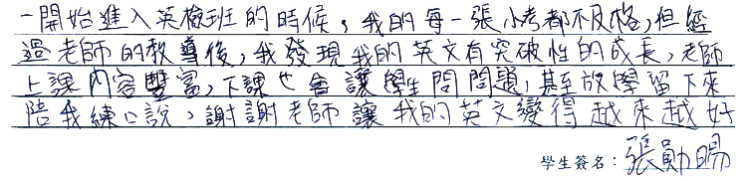 一開始進入英檢班的時候，我的每一張小考都不及格，但經
過老師的教導後，我發現我的英文有突破性的成長，老師
上課內容豐富，下課也會讓學生問問題，甚至放學留下來
陪我練口說，謝謝老師讓我的英文變得越來越好
學生簽名：張勛暘